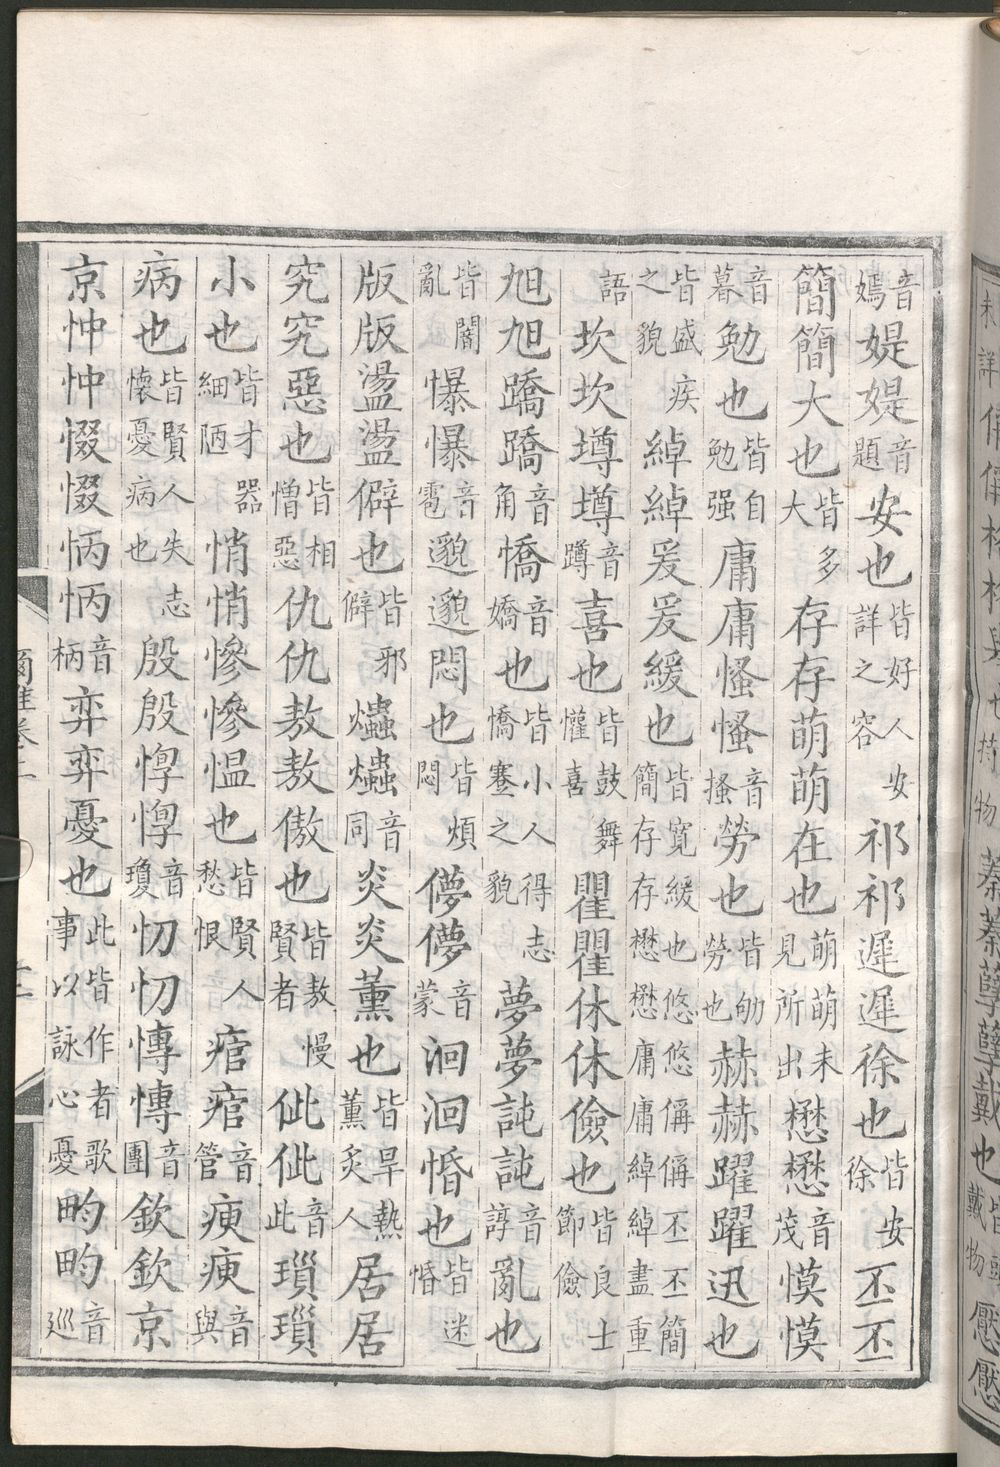 未詳偁偁格格舉也持物蓁蓁孽孽戴也皆頭戴物懕懕
音嫣媞媞音題安也皆好人安詳之容祁祁遲遲徐也皆安徐丕丕
簡簡大也皆多大存存萌萌在也萌萌未見所出懋懋音茂慔慔
音暮勉也皆自勉强庸庸慅慅音搔勞也皆劬勞也赫赫躍躍迅也
皆盛疾之貌綽綽爰爰緩也皆寬緩也悠悠偁偁丕丕簡簡存存懋懋庸庸綽綽盡重
語坎坎墫墫音蹲喜也皆鼓舞懽喜瞿瞿休休儉也皆良士節儉
旭旭蹻蹻音角憍音嬌也皆小人得志憍蹇之貌夢夢訰訰音諄亂也
皆闇亂爆爆音雹邈邈悶也皆煩悶儚儚音蒙洄洄惛也皆迷惛
版版盪盪僻也皆邪僻爞爞音同炎炎薰也皆旱熱薰炙人居居
究究惡也皆相憎惡仇仇敖敖傲也皆敖慢賢者佌佌音此瑣瑣
小也皆才器細陋悄悄慘慘慍也皆賢人愁恨痯痯音管瘐瘐音與
病也皆賢人失志懷憂病也殷殷惸惸音瓊忉忉慱慱音團欽欽京
京忡忡惙惙怲怲音柄弈弈憂也此皆作者歌事以詠心憂畇畇音巡